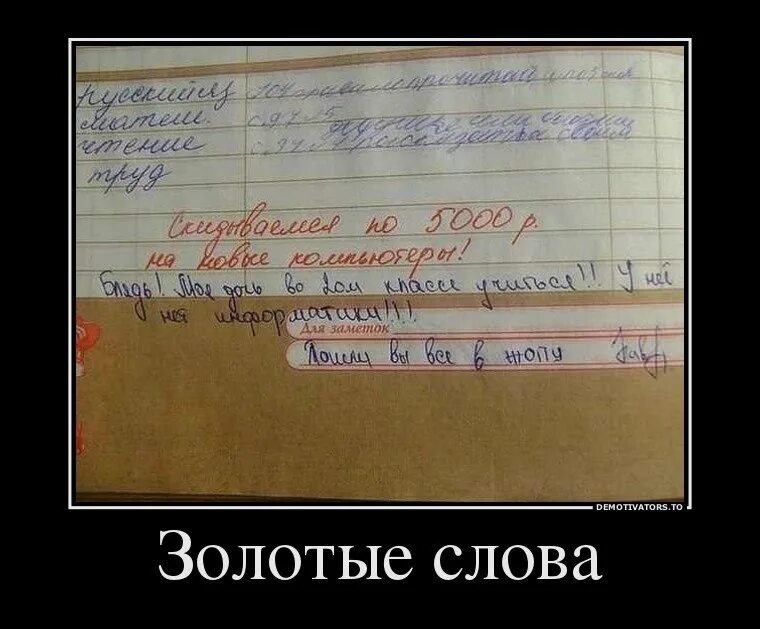 русский яз 104 правило прочитай
матем. с. 97 №5
чтение с. 34
труд
Скидываемся по 5000 р.
на новые компьютеры!
Блядь! Моя дочь во 2ом классе учиться!! У неё
нет информатики!!!
Для заметок
Пошли вы все в жопу
DEMOTIVATORS.TO
Золотые слова